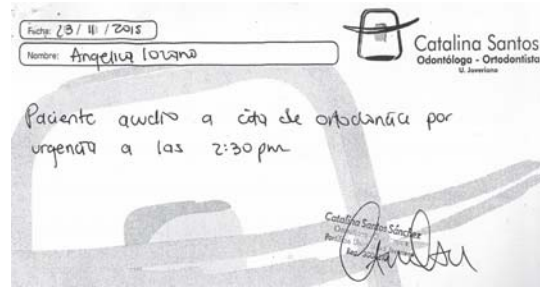 Fecha: 23/ III / 2015
Nombre: Angelica Lozano
Catalina Santos
Odontóloga - Ortodontista
U. Javeriana
Paciente acudio a cita de ortodoncia por
urgencia a las 2:30 pm
Catalina Santos Sánchez